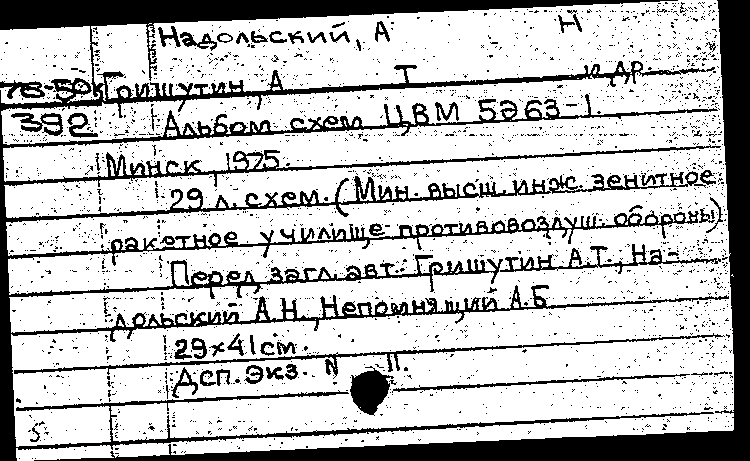 Надольский, А Н
78-50к Гришутин, А Т и др.
392 Альбом схем ЦВМ 5Э63-1.
Минск, 1975.
29 л. схем. (Мин. высш. инж. зенитное
ракетное училище противовоздуш. обороны)
Перед загл. авт.: Гришутин А.Т., На-
дольский А.Н., Непомнящий А.Б
29×41см.
Дсп. Экз. N 11.
5